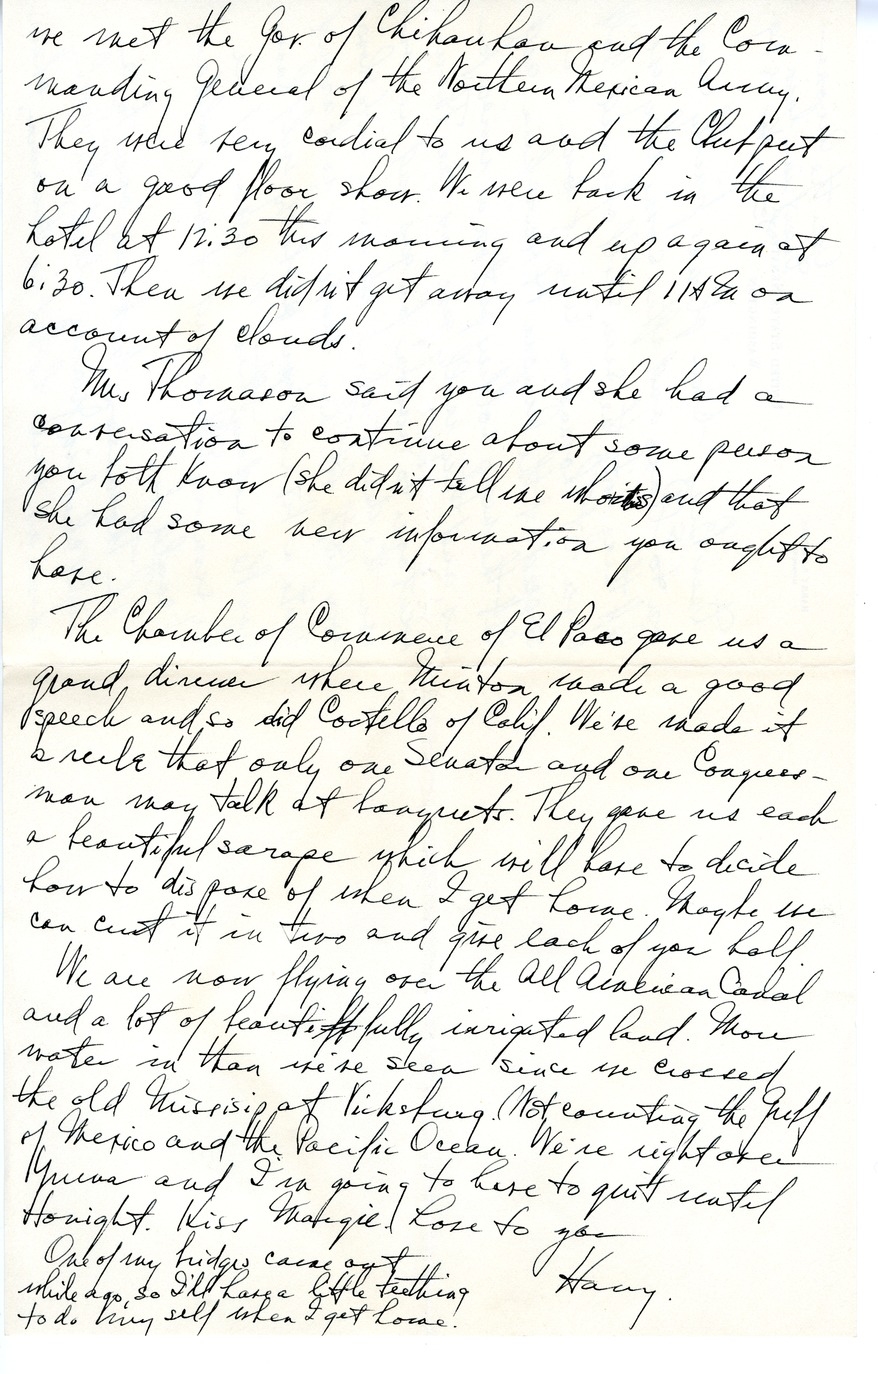 we met the Gov. of Chihauhau and the Com-
manding General of the Northern Mexican Army.
They were very cordial to us and the Club put
on a good floor show. We were back in the
hotel at 12:30 this morning and up again at
6:30. Then we didn't get away until 11 A.M. on
account of clouds.
Mrs Thomason said you and she had a
conversation to continue about some person
you both know (she didn't tell me who its) and that
she had some new information you ought to
have.
The Chamber of Commerce of El Paso gave us a
grand dinner where Minton made a good
speech and so did Costello of Calif. We've made it
a rule that only one Senator and one Congress-
man may talk at banquets. They gave us each
a beautiful sarape which will have to decide
how to dispose of when I get home. Maybe we
can cut it in two and give each of you half.
We are now flying over the All American Canal
and a lot of beautifully irrigated land. More
water in than we've seen since we crossed
the old Missisip at Vicksburg. (Not counting the Gulf
of Mexico and the Pacific Ocean. We're right over
Yuma and I'm going to have to quit until
tonight. Kiss Margie. Love to you
Harry.
One of my bridges came out
while ago, so I'll have a little teething
to do myself when I get home.